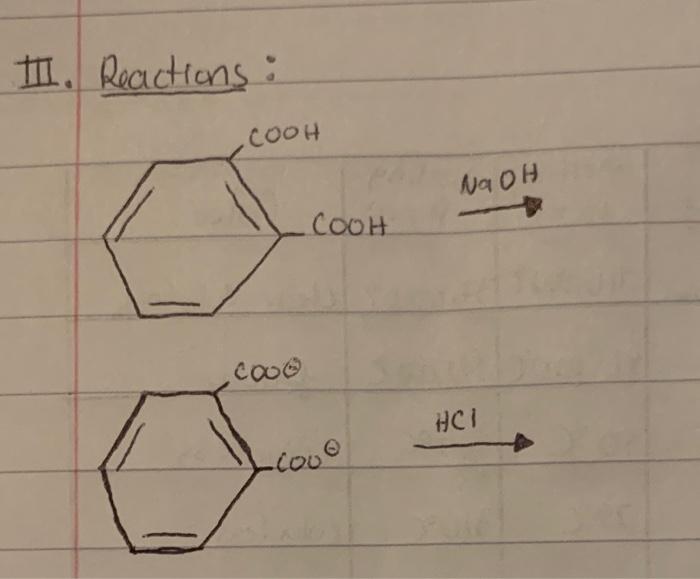 III. Reactions:
COOH
NaOH
COOH
COO⊖
HCl
COO⊖